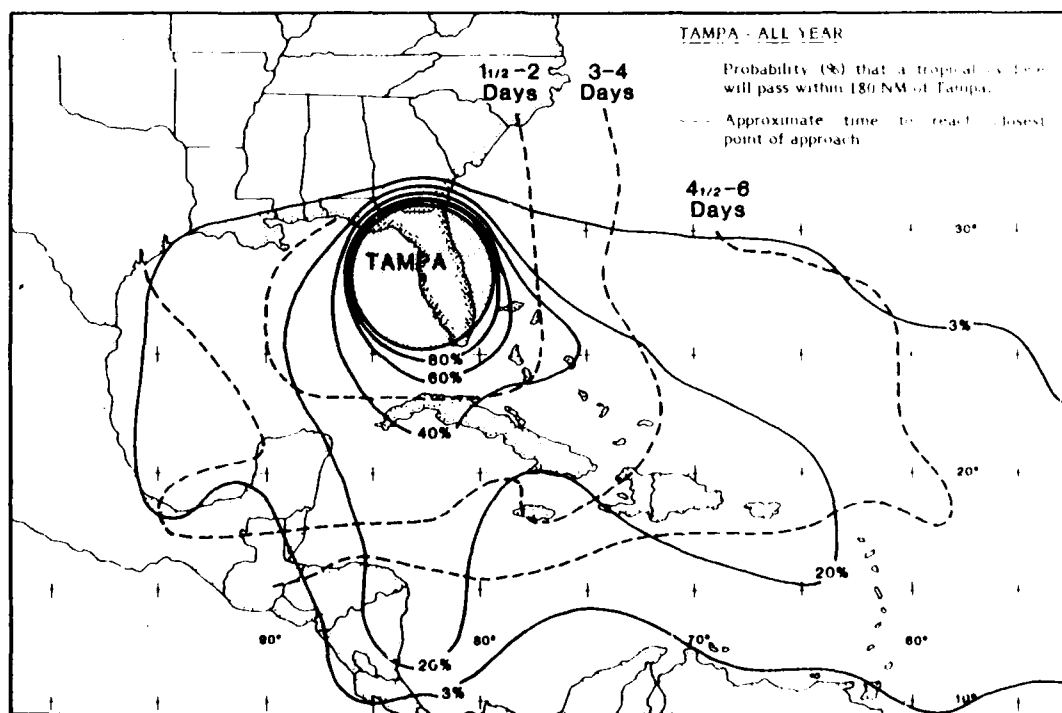 TAMPA - ALL YEAR
Probability (%) that a tropical
will pass within 180 NM of Tampa.
Approximate time to reach closest
point of approach
1 1/2-2
Days
3-4
Days
4 1/2-6
Days
30°
TAMPA
3%
80%
60%
40%
20°
20%
90°
80°
70°
60°
20%
3%
10°